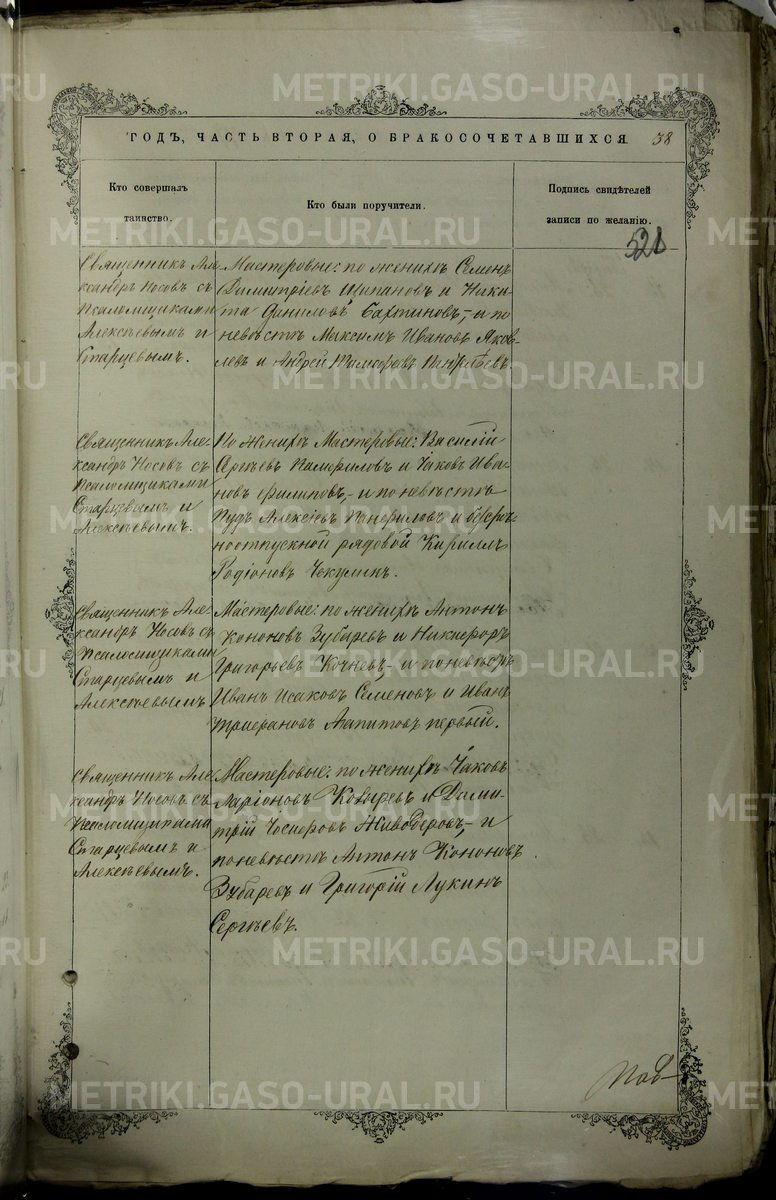 ГОДЪ, ЧАСТЬ ВТОРАЯ, О БРАКОСОЧЕТАВШИХСЯ. 38
Кто совершалъ
таинство.
Кто были поручители.
Подпись свидѣтелей
записи по желанію.
521
Священникъ Але-
ксандръ Носовъ съ
Псаломщиками
Алексѣевымъ и
Старцевымъ.
Мастеровые: по женихѣ Семенъ
Димитріевъ Щипановъ и Ники-
та Даниловъ и по
невѣстѣ Максимъ Ивановъ Яков-
левъ и Андрей Тимофеевъ
Священникъ Але-
ксандръ Носовъ съ
Псаломщиками
Старцевымъ и
Алексѣевымъ.
По женихѣ Мастеровые: Василій
Сергѣевъ и Яковъ Ива-
новъ Филиповъ, и по невѣстѣ
Пудъ Алексѣевъ и безсроч-
ноотпускной рядовой Кириллъ
Родіоновъ Чекулинъ.
Священникъ Але-
ксандръ Носовъ съ
Псаломщиками
Старцевымъ и
Алексѣевымъ
Мастеровые: по женихѣ Антонъ
Кононовъ Зубаревъ и Никифоръ
Григорьевъ Кочневъ, и по невѣстѣ
Иванъ Исаковъ Семеновъ и Иванъ
Трифановъ Лапитовъ первый.
Священникъ Але-
ксандръ Носовъ съ
Псаломщиками
Старцевымъ и
Алексѣевымъ.
Мастеровые: по женихѣ Яковъ
Ларіоновъ Козыревъ и Дими-
трій Живодеровъ, и
по невѣстѣ Антонъ Кононовъ
Зубаревъ и Григорій Лукинъ
Сергѣевъ.
METRIKI.GASO-URAL.RU